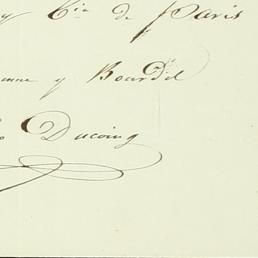 y Cia de Paris
nne y Bourdel
Ducoing